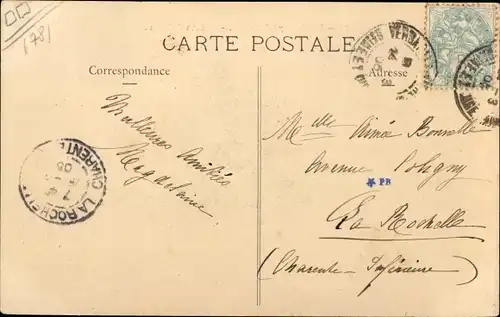 (78)
CARTE POSTALE
Correspondance
Adresse
Meilleures Amitiés
Magdelaine
Melle Aimée Bonnelle
Avenue Coligny
PB
La Rochelle
(Charente Inférieure)
LA ROCHELLE
CHARENTE
7
05
VERSA
SEINE ET